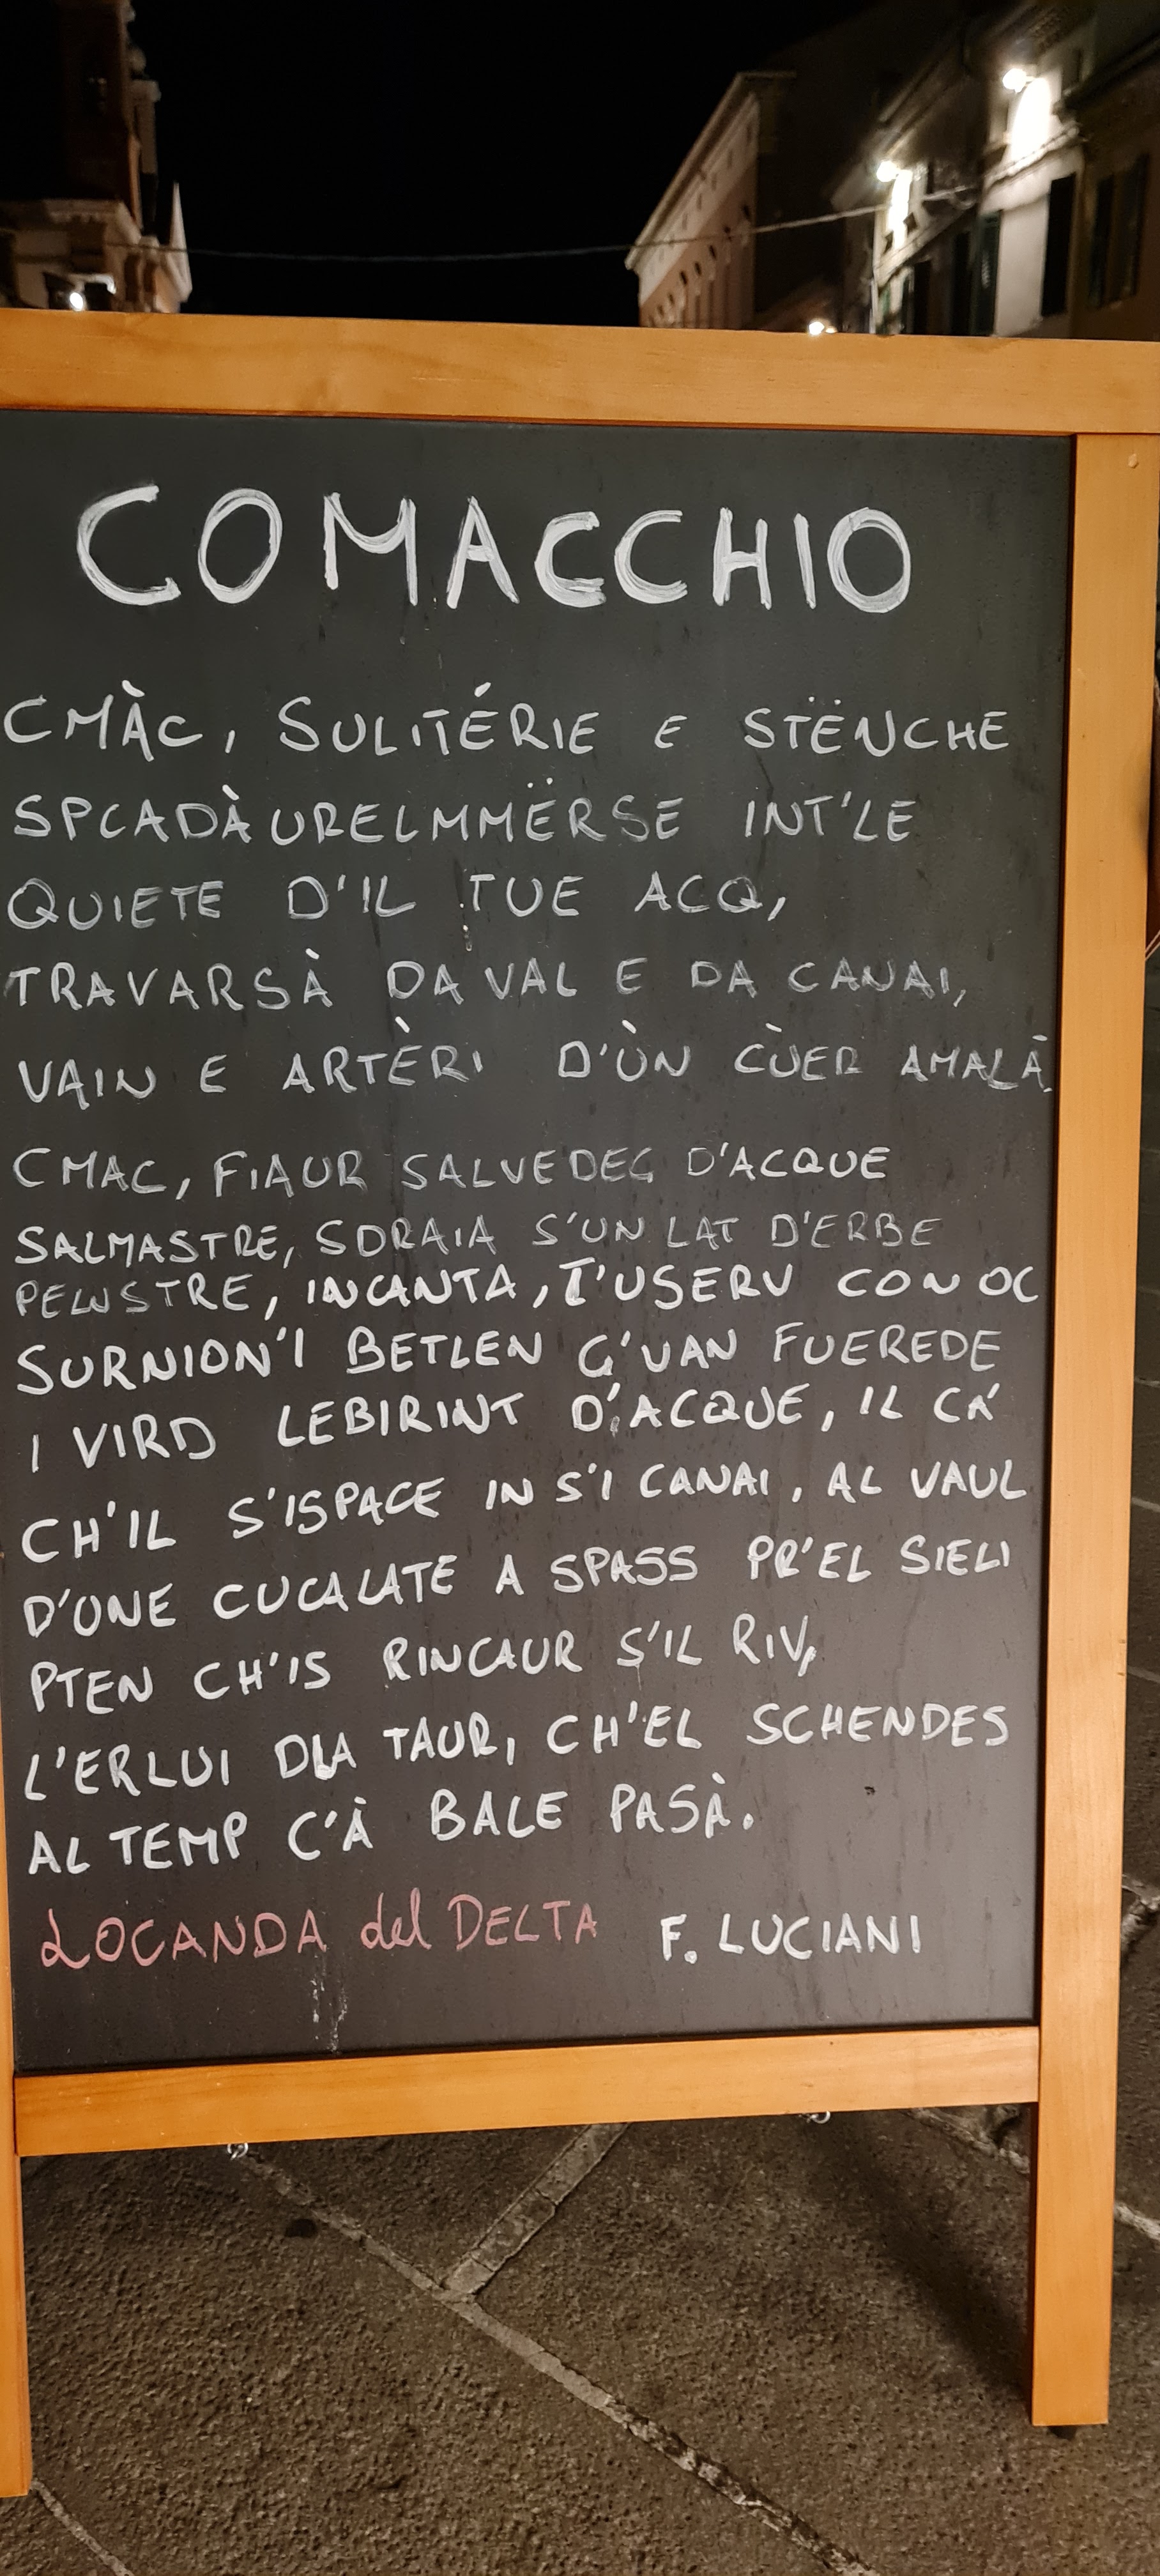 COMACCHIO
CMÀC, SULITÉRIE E STËNCHE
SPCADÀURELMMËRSE INT'LE
QUIETE D'IL TUE ACQ,
TRAVARSÀ DA VAL E DA CANAI,
VAIN E ARTÈRI D'ÙN CÙER AMALÀ.
CMAC, FIAUR SALVEDEG D'ACQUE
SALMASTRE, SDRAIA S'UN LAT D'ERBE
PELUSTRE, INCANTA, T'USERV CON OC
SURNION'I BETLEN G'VAN FUEREDE
I VIRD LEBIRINT D'ACQUE, IL CA'
CH'IL S'ISPACE IN S'I CANAI, AL VAUL
D'UNE CUCALATE A SPASS PR'EL SIELI
PTEN CH'IS RINCAUR S'IL RIV,
L'ERLUI DLA TAUR, CH'EL SCHENDES
AL TEMP C'À BALE PASÀ.
LOCANDA del DELTA F. LUCIANI